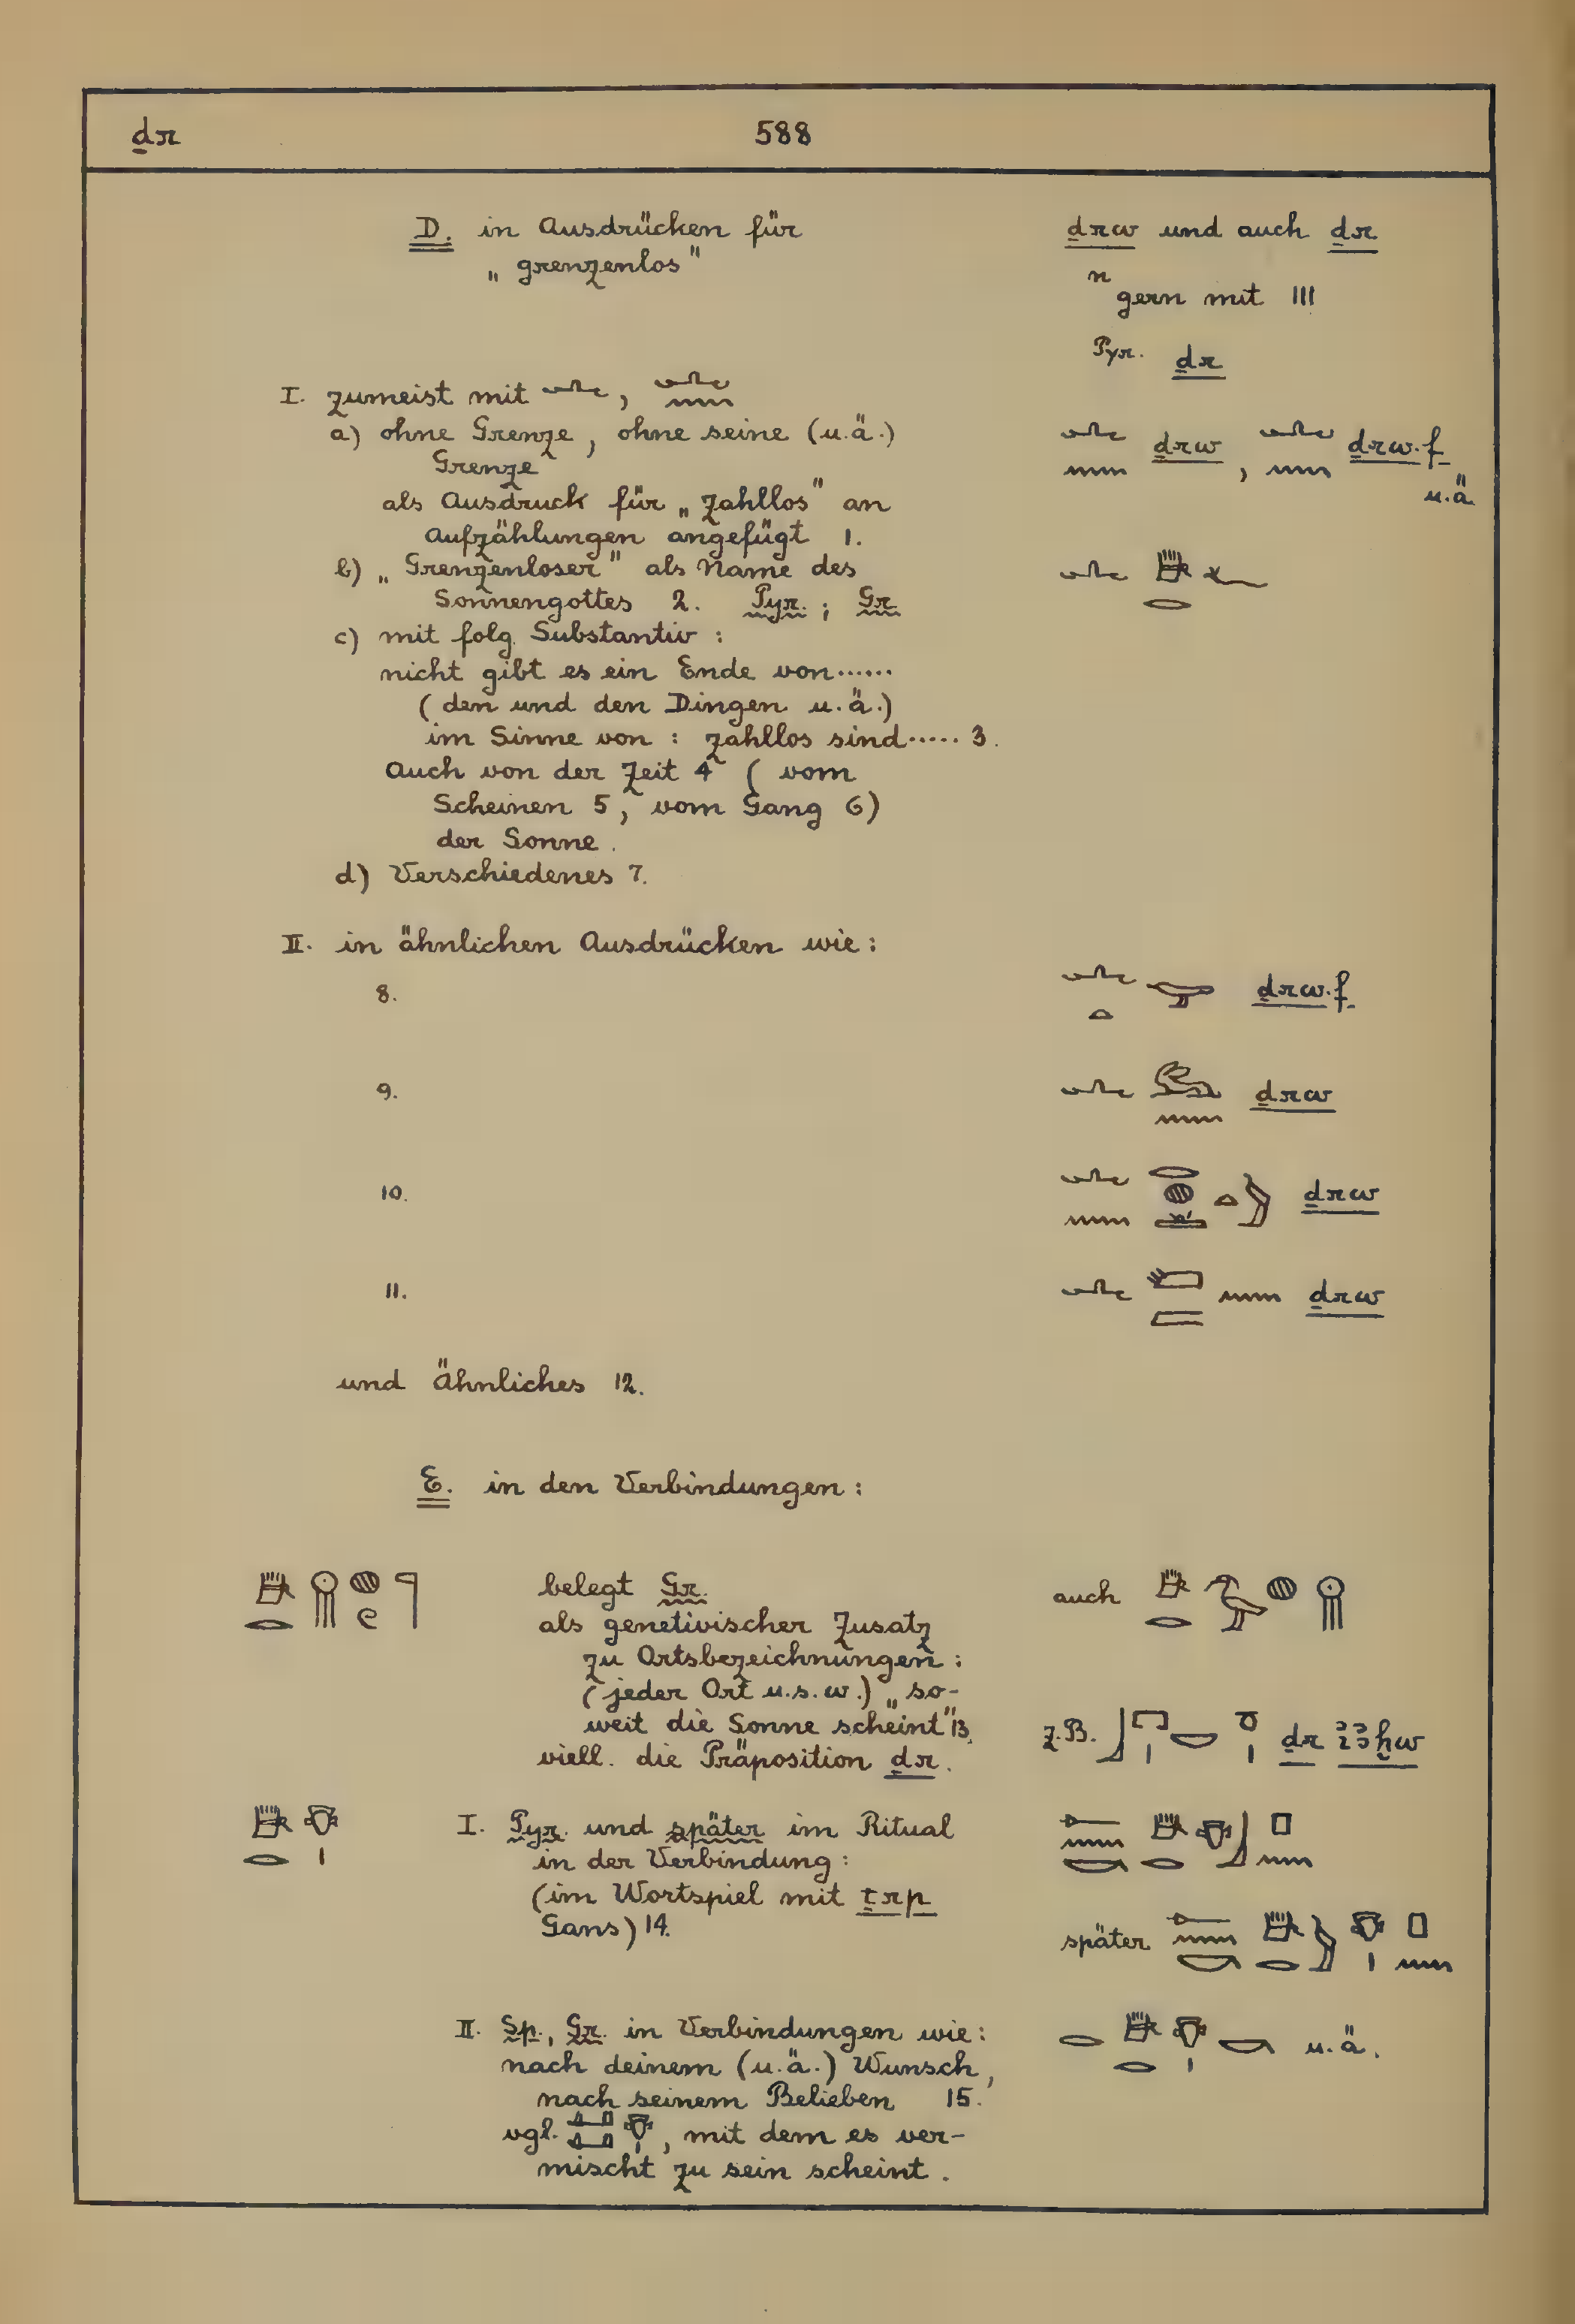 ḏr 588
D. in Ausdrücken für ḏrw und auch ḏr
„grenzenlos"
n gern mit III
Pyr. ḏr
I. zumeist mit 𓂜 , 𓂜𓈖
a) ohne Grenze, ohne seine (u.ä.) 𓂜𓈖 ḏrw , 𓂜𓈖 ḏrw.f
Grenze u.ä
als Ausdruck für „zahllos" an
Aufzählungen angefügt 1.
b) „Grenzenloser" als Name des 𓂜 𓇥𓂋𓆑
Sonnengottes 2. Pyr. ; Gr.
c) mit folg. Substantiv :
nicht gibt es ein Ende von......
(den und den Dingen u.ä.)
im Sinne von : zahllos sind..... 3.
Auch von der Zeit 4 ( vom
Scheinen 5, vom Gang 6)
der Sonne.
d) Verschiedenes 7.
II. in ähnlichen Ausdrücken wie :
8. ḏrw.f
9. ḏrw
10. ḏrw
11. ḏrw
und Ähnliches 12.
E. in den Verbindungen :
belegt Gr. auch
als genetivischer Zusatz
zu Ortsbezeichnungen :
(jeder Ort u.s.w.) „so-
weit die Sonne scheint" 13. z.B. ḏr ꜣḫw
viell. die Präposition ḏr.
I. Pyr. und später im Ritual
in der Verbindung :
(im Wortspiel mit ṯrp
Gans) 14. später
II. Sp., Gr. in Verbindungen wie : u.ä.
nach deinem (u.ä.) Wunsch,
nach seinem Belieben 15.
vgl. , mit dem es ver-
mischt zu sein scheint.